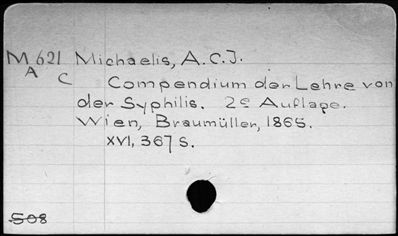 M 621 Michaelis, A.C.J.
A C Compendium der Lehre von
der Syphilis. 2e Auflage.
Wien, Braumüller, 1865.
XVI, 367 S.
508